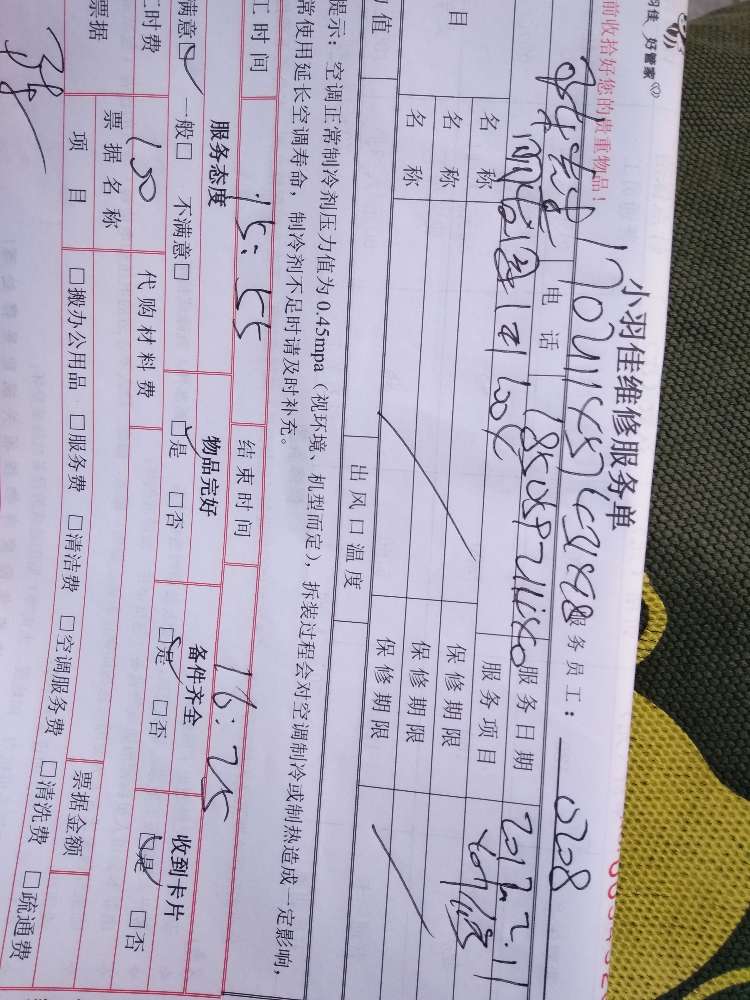 羽佳 好管家
前收拾好您的贵重物品！
小羽佳维修服务单
服务员工： 0208
目
电 话
服务日期 2017.2.11
服务项目
名 称
保修期限
名 称
保修期限
名 称
保修期限
力值
出风口温度
提示：空调正常制冷剂压力值为0.45mpa（视环境、机型而定），拆装过程会对空调制冷或制热造成一定影响，
常使用延长空调寿命，制冷剂不足时请及时补充。
工时间 15:55 结束时间 16:25
服务态度 物品完好 备件齐全 收到卡片
满意□ 一般□ 不满意□ □是 □否 □是 □否 □是 □否
工时费 100 代购材料费
票据 票据名称 票据金额
项 目 □搬办公用品 □服务费 □清洁费 □空调服务费 □清洗费 □疏通费